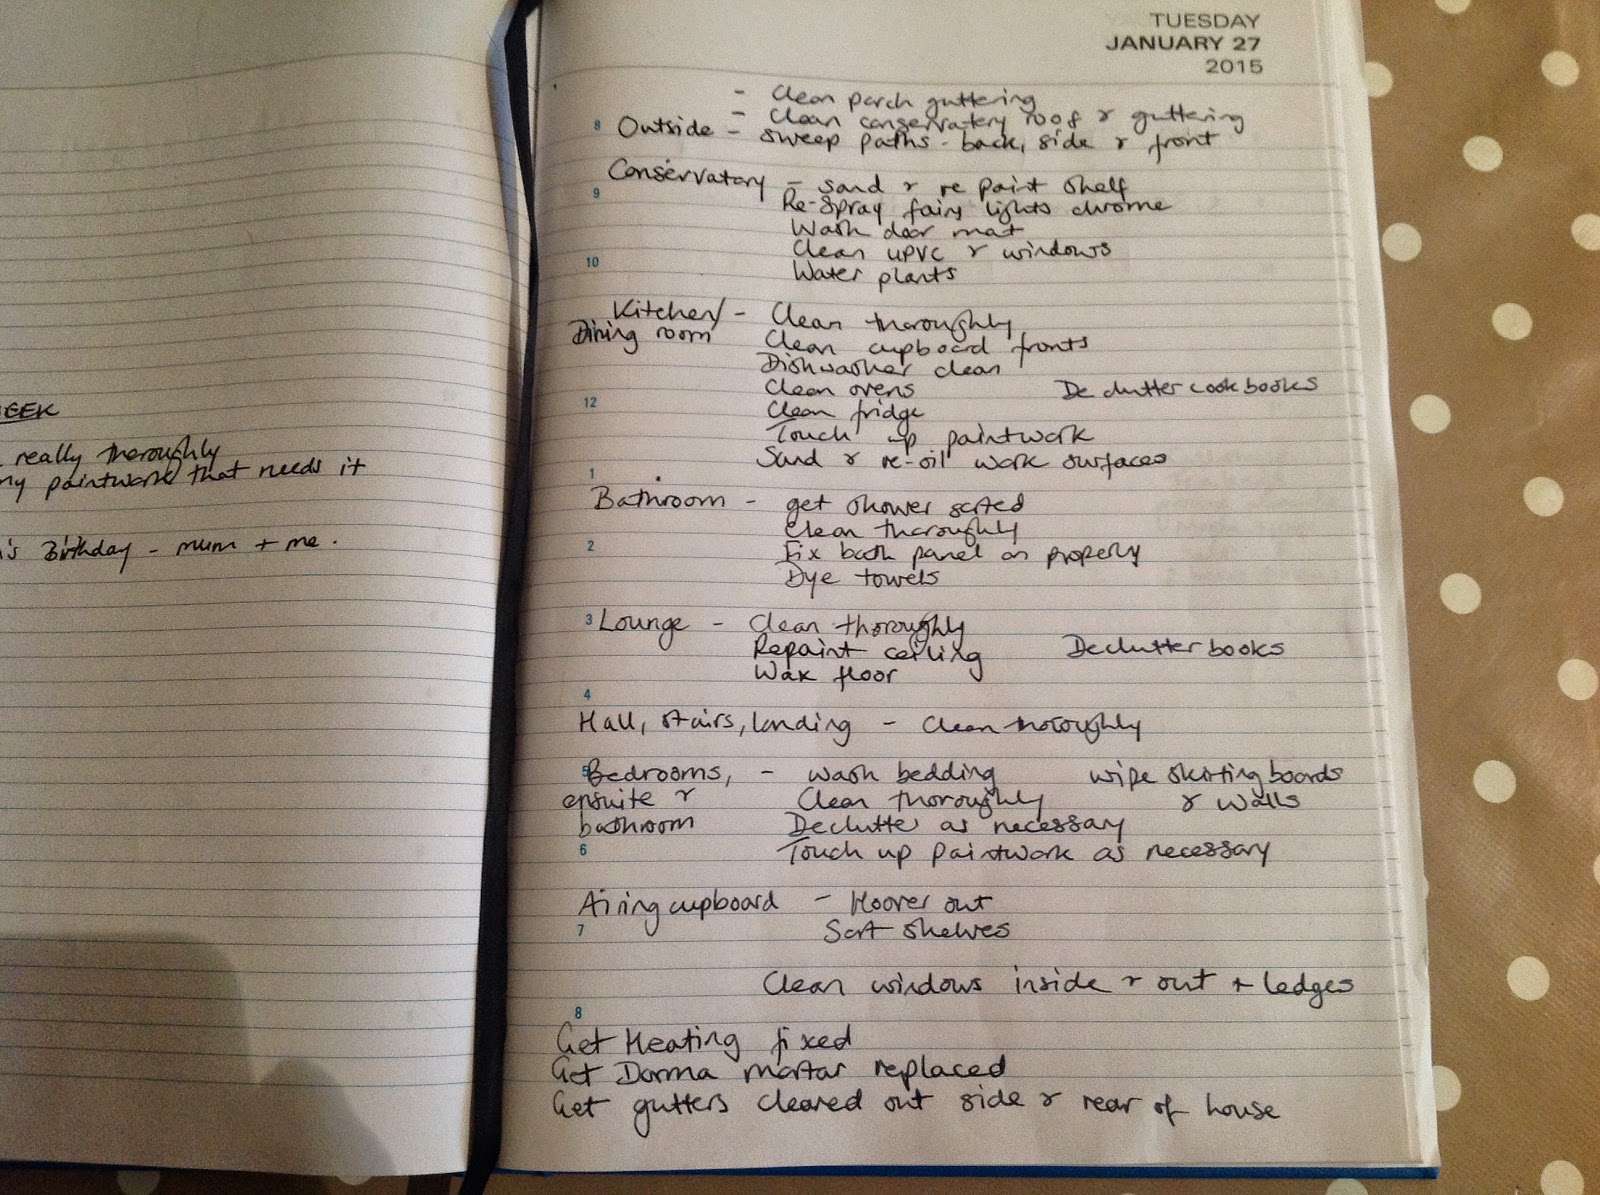 EEK
really thoroughly
ny paintwork that needs it
's Birthday - mum + me.
TUESDAY
JANUARY 27
2015
- Clean porch guttering
- Clean conservatory roof & guttering
8 Outside - sweep paths - back, side & front
Conservatory - sand & re paint shelf
9 Re-spray fairy lights chrome
Wash door mat
Clean UPVC & windows
10 Water plants
Kitchen/ - Clean thoroughly
Dining room Clean cupboard fronts
Dishwasher clean
Clean ovens De clutter cook books
12 Clean fridge
Touch up paintwork
Sand & re-oil work surfaces
1
Bathroom - get shower sorted
Clean thoroughly
2 Fix bath panel on properly
Dye towels
3 Lounge - Clean thoroughly
Repaint ceiling Declutter books
Wax floor
4
Hall, stairs, landing - Clean thoroughly
5 Bedrooms, - wash bedding wipe skirting boards
ensuite & Clean thoroughly & walls
bathroom Declutter as necessary
6 Touch up paintwork as necessary
Airing cupboard - Hoover out
7 Sort shelves
Clean windows inside & out + ledges
8
Get Heating fixed
Get Dorma mortar replaced
Get gutters cleared out side & rear of house